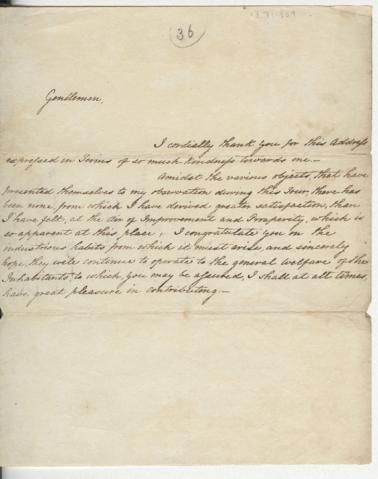 36
Gentlemen,
I cordially thank You for this Address
expressed in Terms of so much kindness towards me.—
Amidst the various objects, that have
presented themselves to my observation during this Tour, there has
been none, from which I have derived greater satisfaction, than
I have felt, at the Air of Improvement and Prosperity, which is
so apparent at this place; I congratulate you on the
industrious habits, from which it must arise, and sincerely
hope, they will continue to operate to the general welfare of the
Inhabitants, to which, you may be assured, I shall at all times,
have, great pleasure in contributing.—